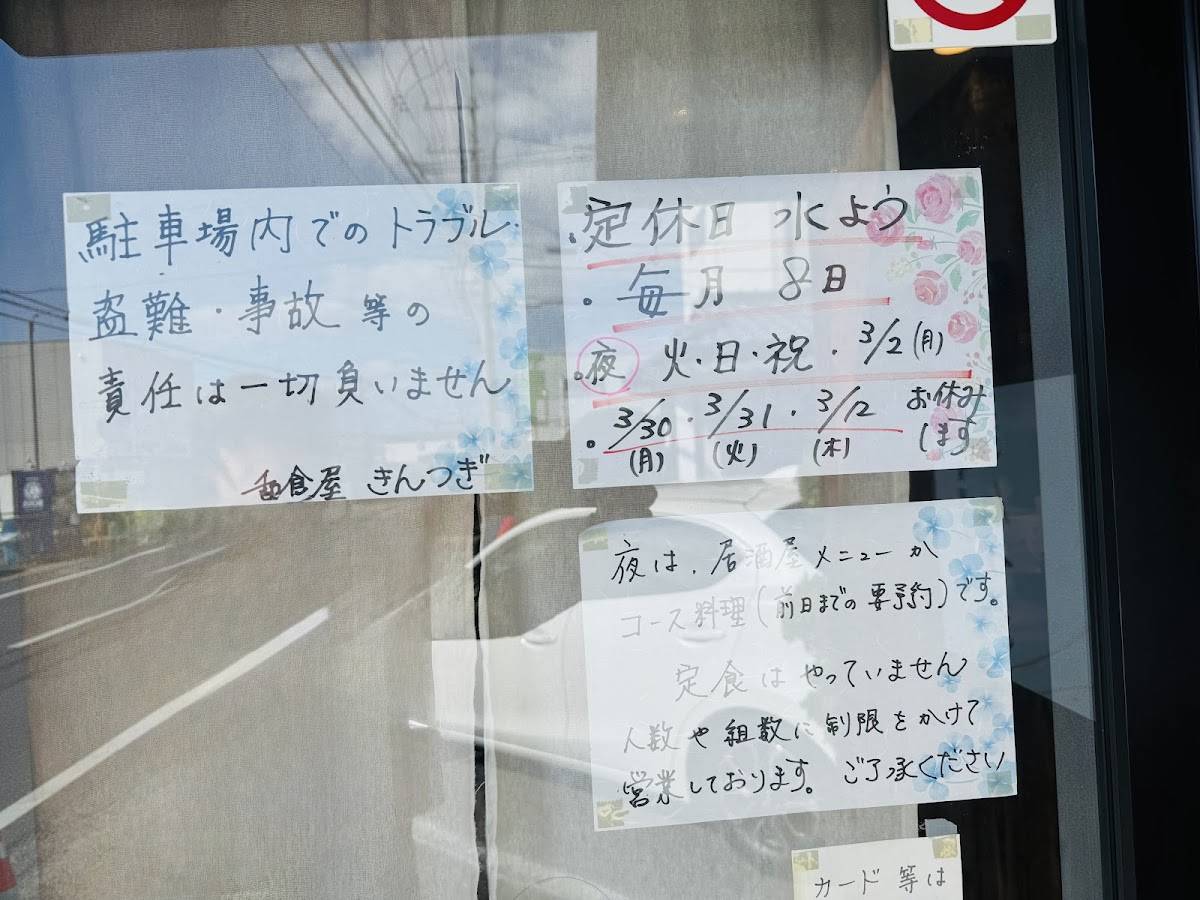 駐車場内でのトラブル
盗難・事故等の
責任は一切負いません
和食屋 きんつぎ
・定休日 水よう
・毎月 8日
・夜 火・日・祝・3/2(月)
・3/30(月)・3/31(火)・3/12(木) お休みします
夜は、居酒屋メニューか
コース料理(前日までの要予約)です。
定食はやっていません
人数や組数に制限をかけて
営業しております。ご了承ください
カード等は